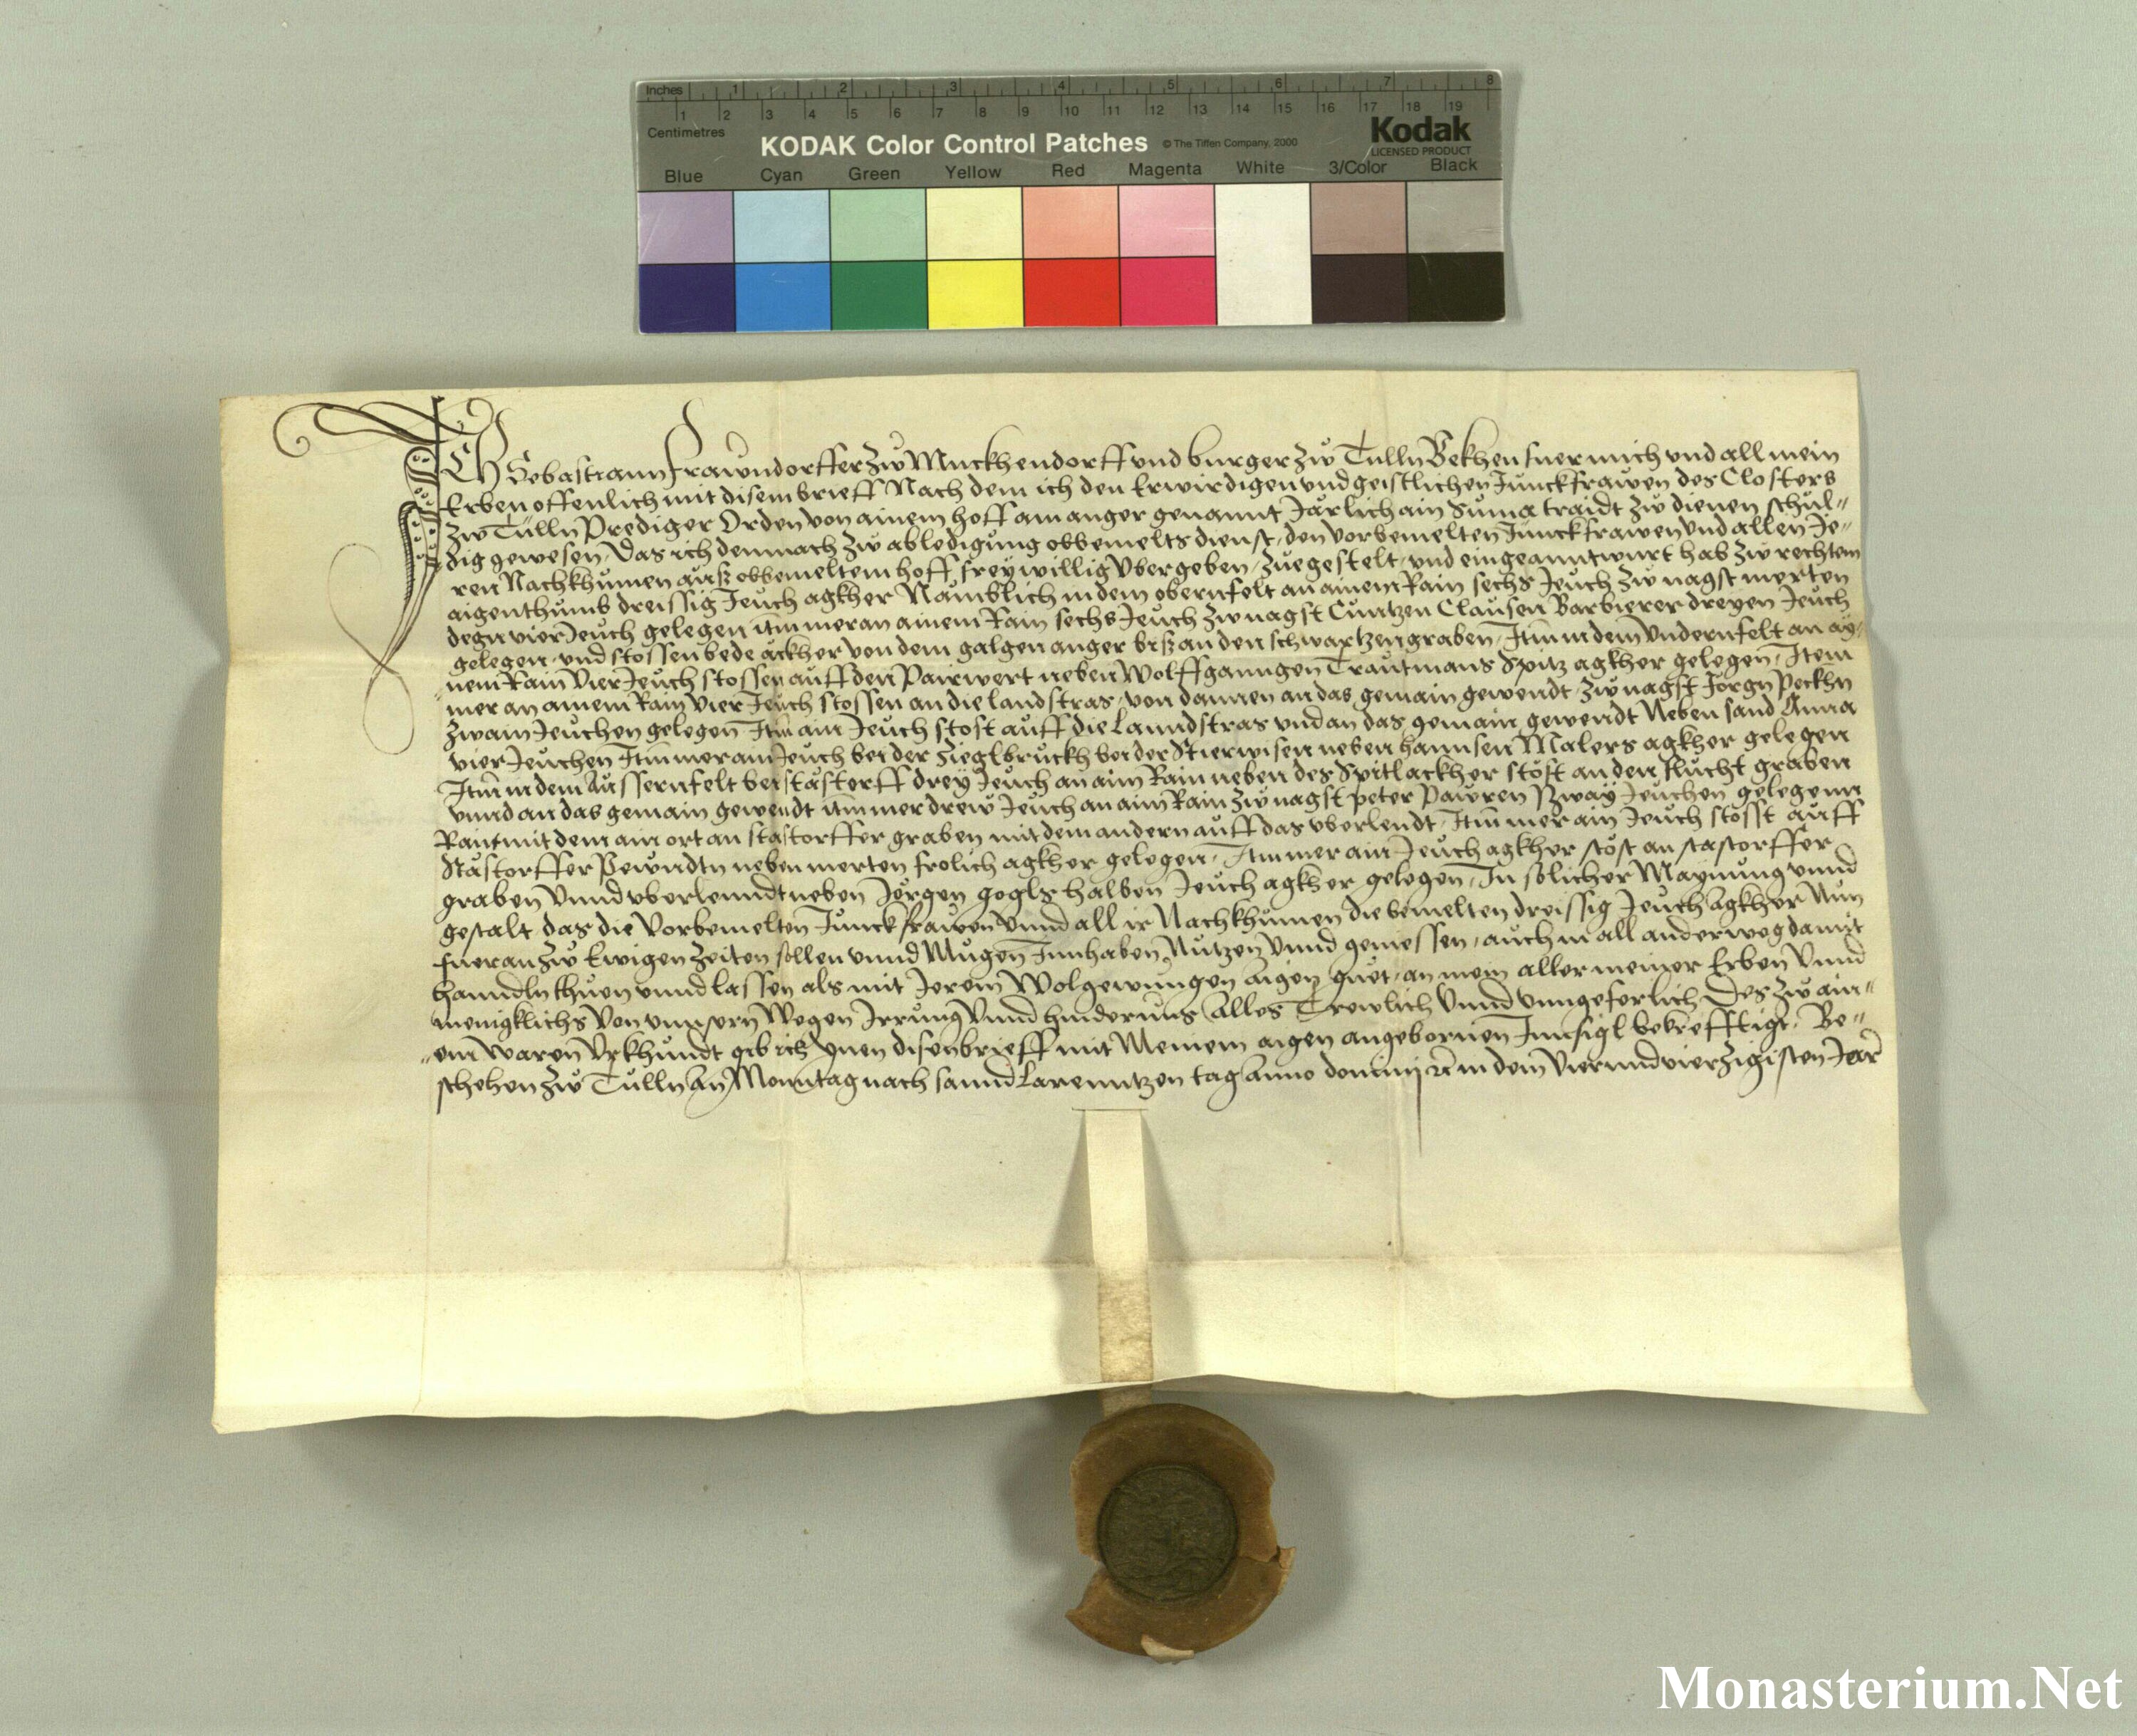 Inches 1 2 3 4 5 6 7 8
1 2 3 4 5 6 7 8 9 10 11 12 13 14 15 16 17 18 19
Centimetres
KODAK Color Control Patches © The Tiffen Company, 2000 Kodak
LICENSED PRODUCT
Blue Cyan Green Yellow Red Magenta White 3/Color Black
ICH Sebastiann Frawndorffer zw Muckhendorff vnd burger zw Tulln Bekhen fuer mich vnd all mein
Erben offenlich mit disem brieff Nach dem ich den Erwirdigen vnd geistlichen Junckfrawen des Closters
zw Tulln Prediger Orden von ainem hoff am anger genannt Järlich ain Suma traidt zw dienen schul-
dig gewesen, Das ich demnach zw abledigung obbemelts dienst, den vorbemelten Junckfrawen vnd allen Je-
ren Nachkhumen auß obbemeltem hoff freywillig Vbergeben, zuegestelt, vnd eingeanntwurt hab zw rechtem
aigenthumb dreissig Jeuch agkher Nämblich in dem obernfelt an ainem Rain sechs Jeuch zw nagst merten
degn vier Jeuch gelegen itm mer an ainem Rain sechs Jeuch zw nagst Cuntzen Clausen Barbierer dreyen Jeuch
gelegen, vnd stossen bede äckher von dem galgen anger biß an den schwartzen graben, Itm in dem Vndernfelt an ay-
nem Rain Vier Jeuch stossen auff den Pairwert neben Wolffganngen Trautmans Spitz agkher gelegen, Item
mer an ainem Rain Vier Jeuch stossen an die landstras, von dannen an das gemain gewendt, zw nagst Jorgn Peckhn
zwain Jeuchen gelegen Itm ain Jeuch stost auff die Lanndstras vnd an das gemain gewendt Neben sand Anna
vier Jeuchen Itm mer ain Jeuch bei der Zieglbruckh bei der Stierwisen neben hannsen Malers agkher gelegen
Itm in dem Aussernfelt bei stästorff drey Jeuch an aim Rain neben des Spitlackher stöst an den flucht graben
vnnd an das gemain gewendt itm mer drew Jeuch an aim Rain zw nagst peter Pawren zway Jeuchen gelegenn
Raint mit dem ain ort an stastorffer graben mit dem andern auff das vberlendt, Itm mer ain Jeuch stosst auff
Stästorffer Pewndtn neben merten frolich agkher gelegen, Itm mer ain Jeuch agkher stöst an stastorffer
graben Vnnd vberlenndt neben Jorgen gogls halben Jeuch agkher gelegen, In solicher Maynung vnnd
gestalt das die Vorbemelten Junckfrawen Vnnd all ir Nachkhumen die bemelten dreissig Jeuch Agkher Nun
fueran zw Ewigen Zeiten sollen vnnd Mugen Innhaben, Nutzen Vnnd geniessen, auch in all ander weg damit
hanndln thuen vnnd lassen als mit Jerem Wolgewungen Aigen guet, an mein aller meiner Erben Vnnd
menigklichs Von vnnsern Wegen Irrung Vnnd hinderung Alles Trewlich Vnnd vnngeferlich Des zw ain-
em waren Vrkhundt gib ich Jnen disen brieff mit Meinem aigen angebornen Innsigl bekrefftigt, Be-
schehen zw Tulln An Monntag nach sannd Larenntzen tag Anno domini rc in dem Vierundvierzigisten Jare
Monasterium.Net